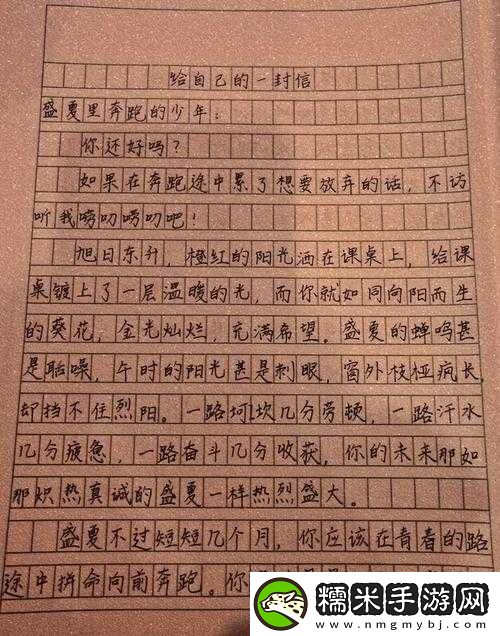 给自己的一封信
盛夏里奔跑的少年：
你还好吗？
如果在奔跑途中累了想要放弃的话，不访
听我唠叨唠叨吧！
旭日东升，橙红的阳光洒在课桌上，给课
桌镀上了一层温暖的光，而你就如同向阳而生
的葵花，金光灿烂，充满希望。盛夏的蝉鸣甚
是聒噪，午时的阳光甚是刺眼，窗外枝桠疯长，
却挡不住烈阳。一路坷坎几分劳顿，一路汗水
几分疲惫，一路奋斗几分收获，你的未来那如
那炽热真诚的盛夏一样热烈盛大。
盛夏不过短短几个月，你应该在青春的路
途中拼命向前奔跑。你
糯米手游网
www.nmgmybj.com